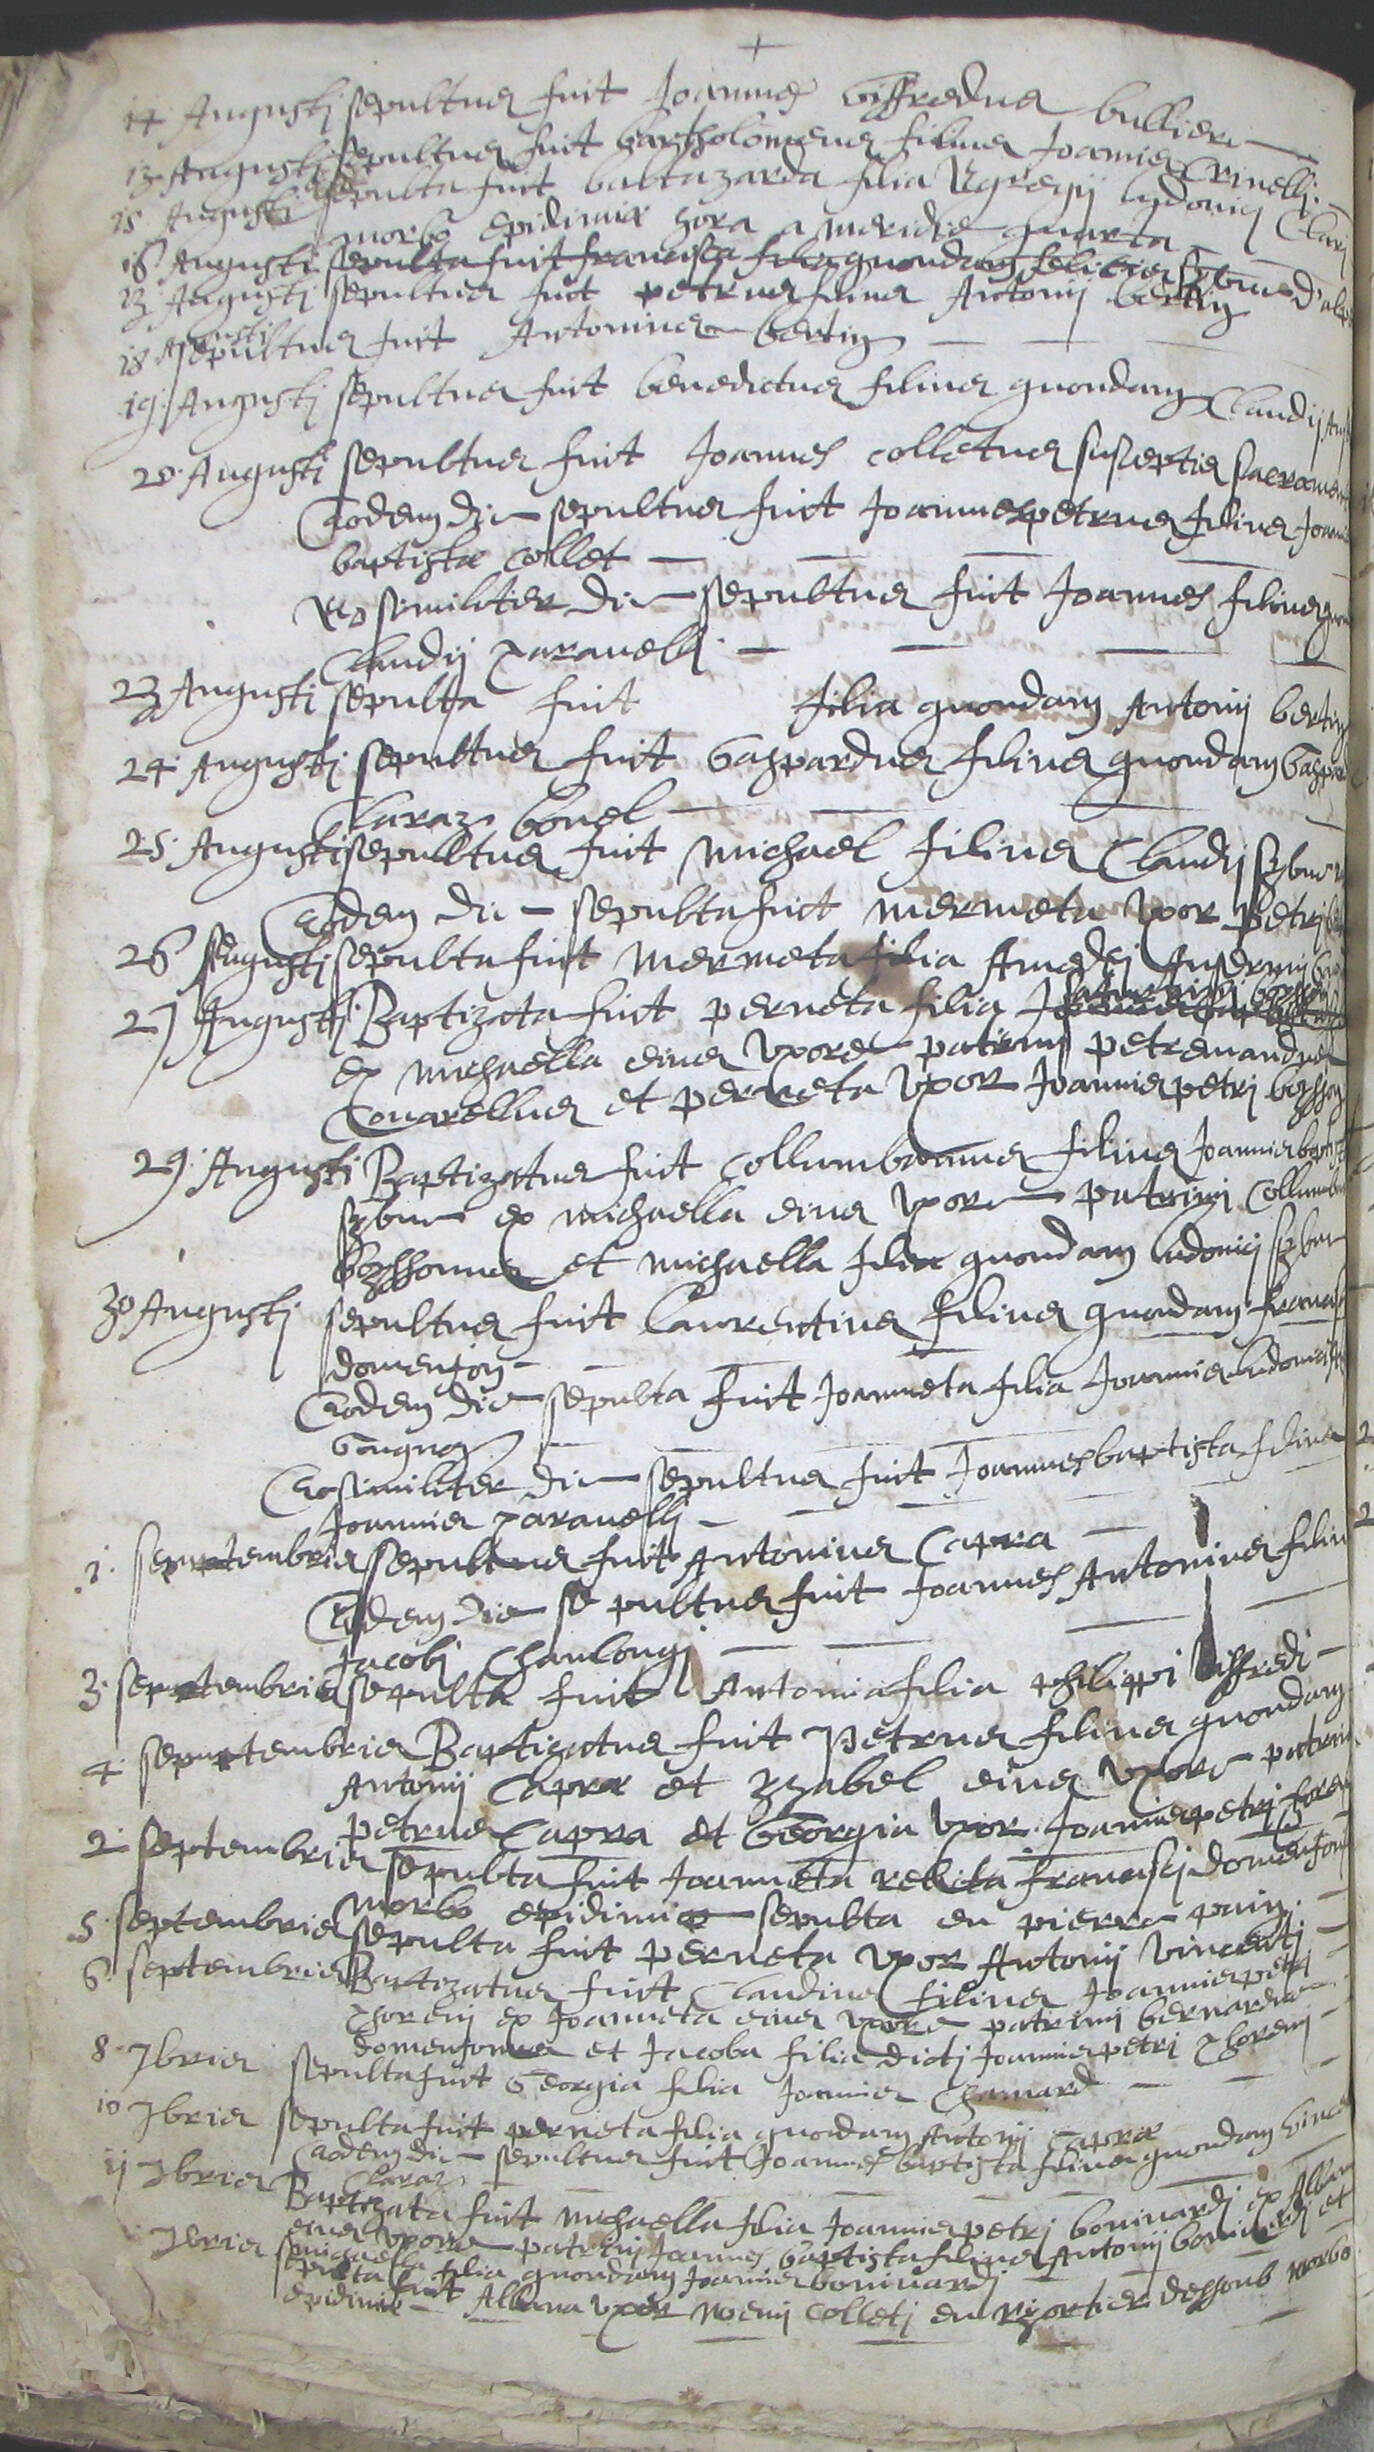 +
14 Augusti sepultus fuit Joannes Viffredus bullier
13 Augusti sepultus fuit bartholomeus filius Joannis Crinelli
15 Augusti sepulta fuit baltazarda filia Egregij ludovici Clari
morbo epidimiæ hora a meridie quarta
16 Augusti sepulta fuit francisca filia quondam felicis
13 Augusti sepultus fuit petrus filius Antonij bertin
18 Augusti sepultus fuit Antonius bertin
19 Augusti sepultus fuit benedictus filius quondam Claudij
20 Augusti sepultus fuit Joannes colletus susceptis sacramen
Eodem die sepultus fuit Joannespetrus filius Joannis
baptistæ Collet
Eo similiter die sepultus fuit Joannes filius quon
Claudij paravelli
23 Augusti sepulta fuit filia quondam Antonij bertin
24 Augusti sepultus fuit Gaspardus filius quondam Gaspar
Claraz bonel
25 Augusti sepultus fuit Michael filius Claudij sybue
Eodem die sepulta fuit Mermeta uxor petri
26 Augusti sepulta fuit Mermeta filia Amedei Ansermij
27 Augusti Baptizata fuit perneta filia
ex michaella eius uxore patrini petremandus
Couarellus et perneta uxor Joannispetri bosson
29 Augusti Baptizatus fuit Collumbanus filius Joannisbaptist
sybue ex michaella eius uxore patrini Collumba
bossonus et michaella filia quondam ludovici sybue
30 Augusti sepultus fuit Laurentius filius quondam francis
domenjon
Eodem die sepulta fuit Joanneta filia Joannis ludovici
Gaugnox
Eo similiter die sepultus fuit Joannesbaptista filius
Joannis paravelli
1 septembris sepultus fuit Antonius Capra
Eodem die sepultus fuit Joannes Antonius filiu
Jacobi Chanlongi
3 septembris sepulta fuit Antonia filia philippi Viffredi
4 septembris Baptizatus fuit Petrus filius quondam
Antonij Capræ et yzabel eius uxore patrini
petrus Capra et Georgia uxor Joannispetri foren
2 septembris sepulta fuit Joanneta relicta francisci domenjon
morbo epidimiæ sepulta en pierra pain
5 septembris sepulta fuit perneta uxor Antonij Vincentj
6 septembris Baptizatus fuit Claudius filius Joannispetri
Thorenj ex Joanneta eius uxore patrini bernardus
domenjonus et Jacoba filia dicti Joannispetri Thorenj
8 7bris sepulta fuit Georgia filia Joannis Chamard
10 7bris sepulta fuit perneta filia quondam Antonij Capræ
Eodem die sepultus fuit Joannes baptista filius quondam Vince
Claraz
11 7bris Baptizata fuit michaella filia Joannispetri bonivardi ex Alban
eius uxore patrini Joannes baptista filius Antonij bonivardi et
michaella filia quondam Joannis bonivardi
7bris sepulta fuit Albana uxor Noemj Colletj en Mortier dessoub morbo
epidimiæ